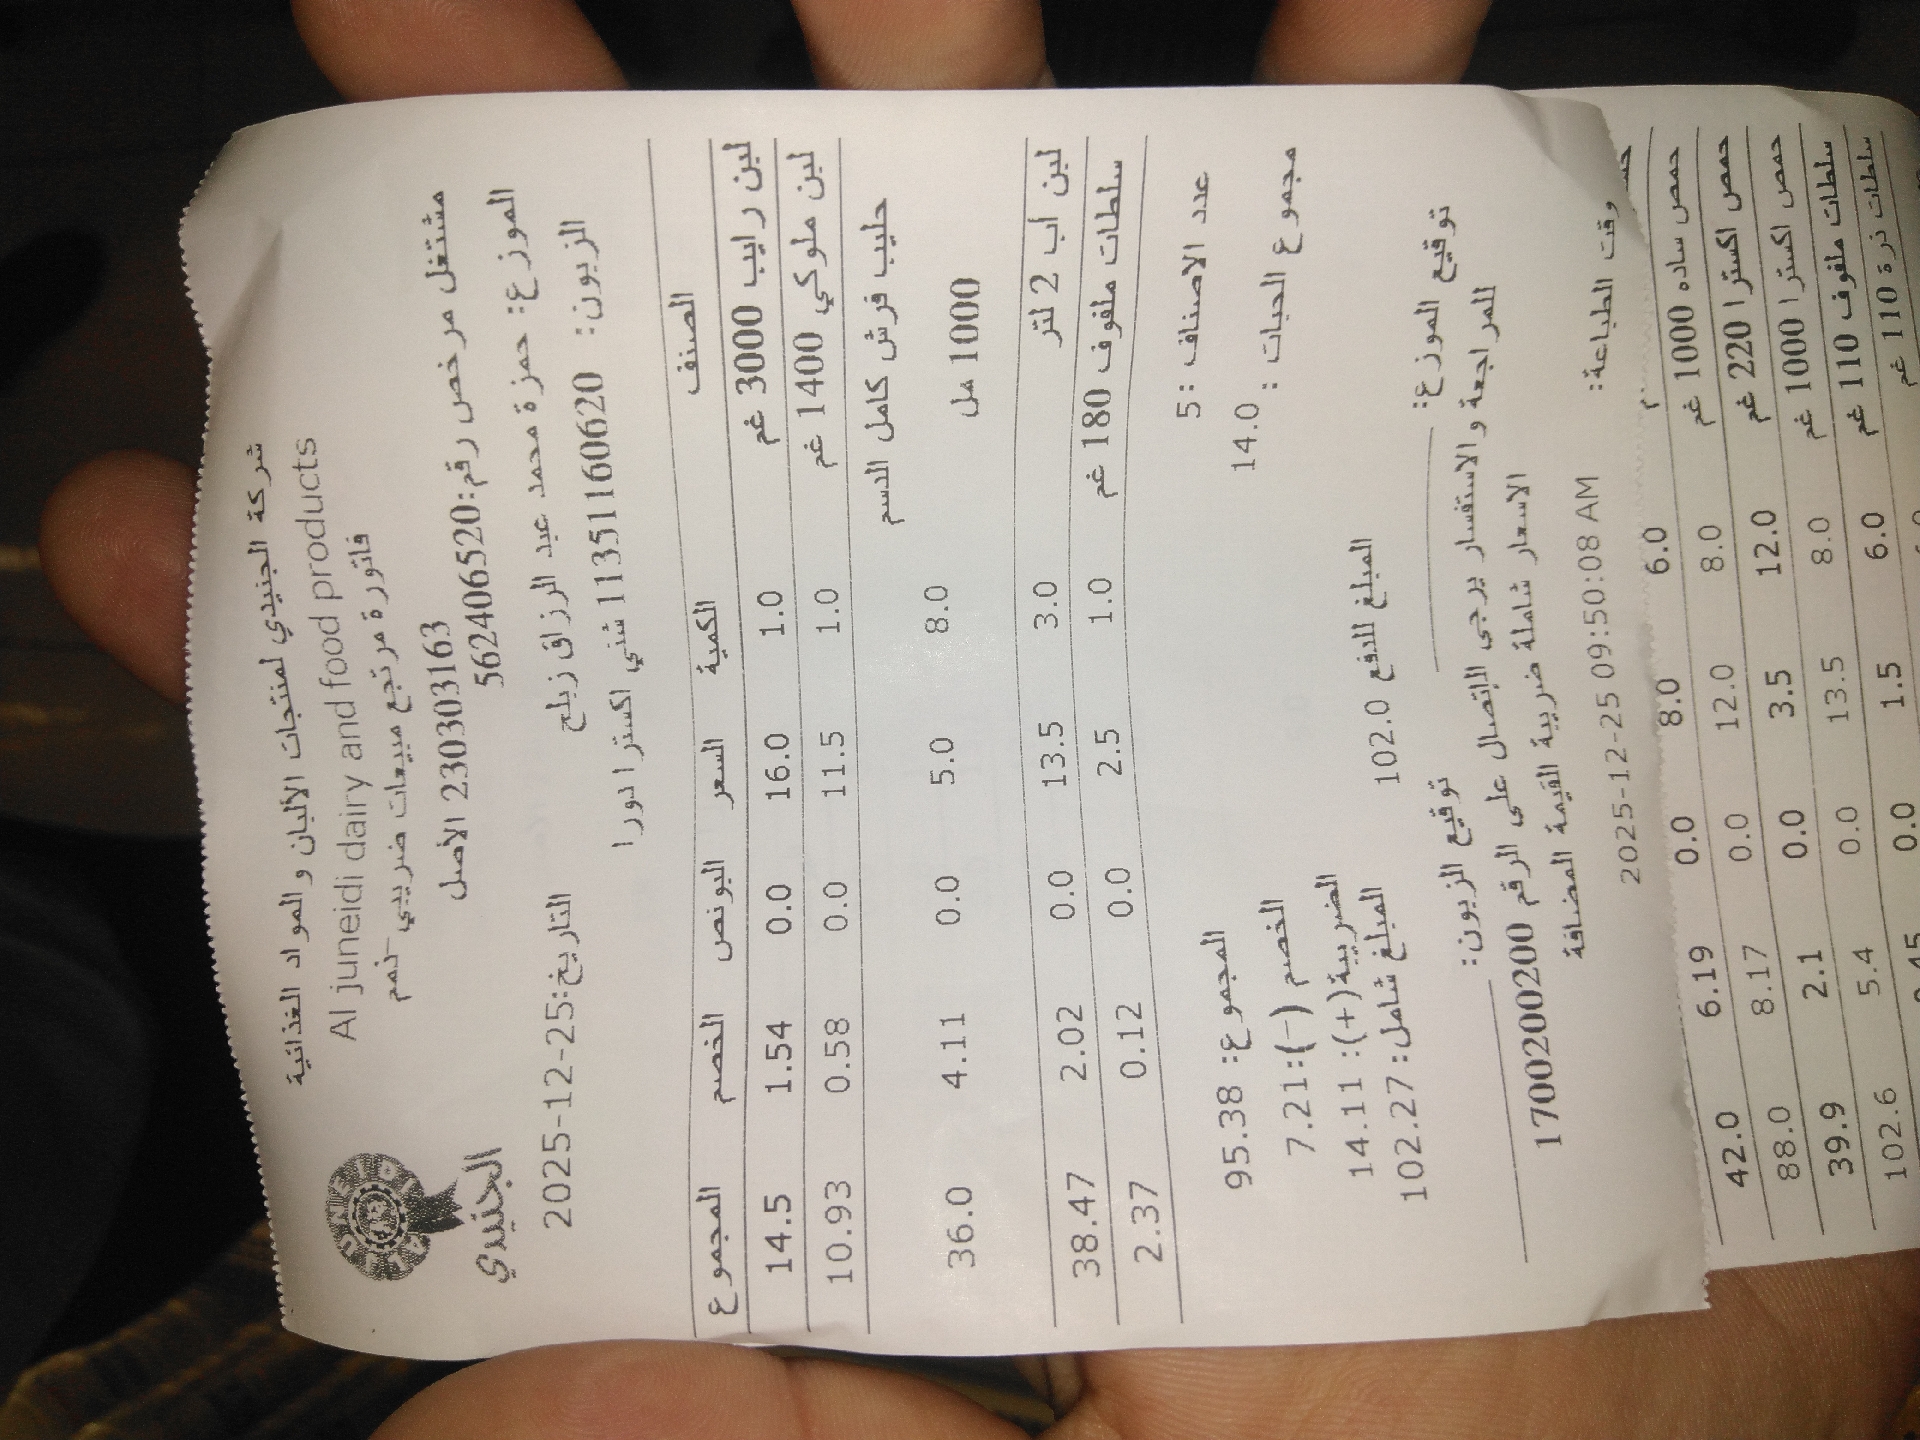 شركة الجنيدي لمنتجات الألبان والمواد الغذائية
Al juneidi dairy and food products
فاتورة مرتجع مبيعات ضريبي -نمم
230303163 الاصل
مشتغل مرخص رقم:562406520
الجنيدي
الموزع: حمزة محمد عبد الرزاق زبلح
التاريخ:2025-12-25
الزبون: 11351160620 شني اكسترا دورا
الصنف الكمية السعر البونص الخصم المجموع
لبن رايب 3000 غم 1.0 16.0 0.0 1.54 14.5
لبن ملوكي 1400 غم 1.0 11.5 0.0 0.58 10.93
حليب فرش كامل الدسم
1000 مل 8.0 5.0 0.0 4.11 36.0
لبن اب 2 لتر 3.0 13.5 0.0 2.02 38.47
سلطات ملفوف 180 غم 1.0 2.5 0.0 0.12 2.37
عدد الاصناف : 5 المجموع: 95.38
مجموع الحبات : 14.0 الخصم (-):7.21
الضريبة(+): 14.11
المبلغ للدفع 102.0 المبلغ شامل: 102.27
توقيع الموزع: توقيع الزبون:
للمراجعة والاستفسار يرجى الاتصال على الرقم 1700200200
الاسعار شاملة ضريبة القيمة المضافة
وقت الطباعة: 2025-12-25 09:50:08 AM
6.0 8.0 0.0 6.19 42.0
حمص ساده 1000 غم 8.0 12.0 0.0 8.17 88.0
حمص اكسترا 220 غم 12.0 3.5 0.0 2.1 39.9
حمص اكسترا 1000 غم 8.0 13.5 0.0 5.4 102.6
سلطات ملفوف 110 غم 6.0 1.5 0.0
سلطات ذرة 110 غم